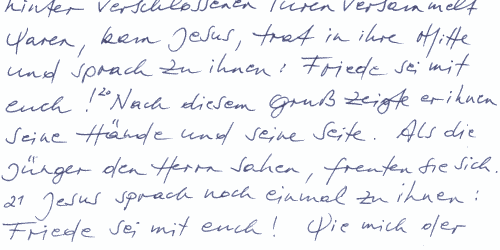 hinter verschlossenen Türen versammelt
waren, kam Jesus, trat in ihre Mitte
und sprach zu ihnen: Friede sei mit
euch! 20 Nach diesem Gruß zeigte er ihnen
seine Hände und seine Seite. Als die
Jünger den Herrn sahen, freuten sie sich.
21 Jesus sprach noch einmal zu ihnen:
Friede sei mit euch! Wie mich der